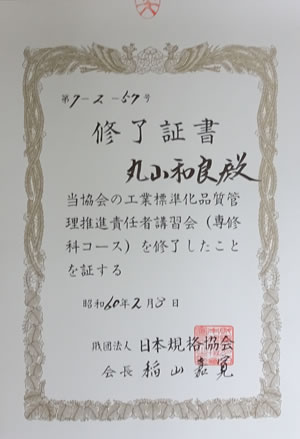 第7-2-57号
修了証書
丸山和良殿
当協会の工業標準化品質管
理推進責任者講習会（専修
科コース）を修了したこと
を証する
昭和60年2月8日
財団法人 日本規格協会
会長 稲山嘉寛